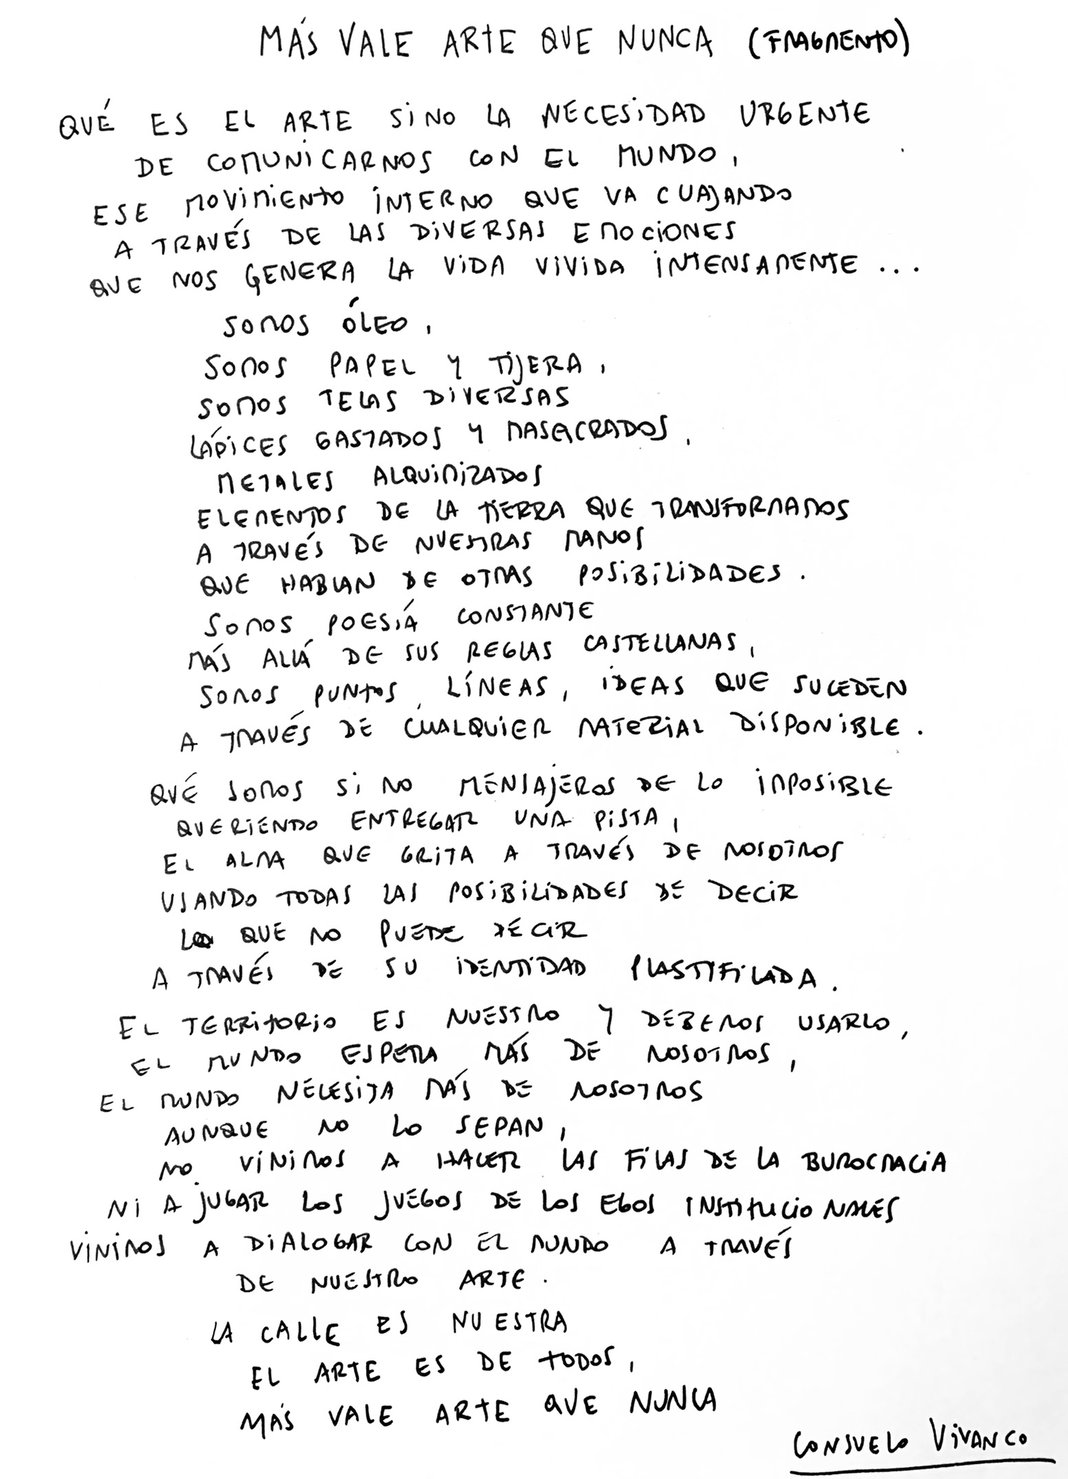 MÁS VALE ARTE QUE NUNCA (FRAGMENTO)
QUÉ ES EL ARTE SINO LA NECESIDAD URGENTE
DE COMUNICARNOS CON EL MUNDO,
ESE MOVIMIENTO INTERNO QUE VA CUAJANDO
A TRAVÉS DE LAS DIVERSAS EMOCIONES
QUE NOS GENERA LA VIDA VIVIDA INTENSAMENTE ...
SOMOS ÓLEO,
SOMOS PAPEL Y TIJERA,
SOMOS TELAS DIVERSAS
LÁPICES GASTADOS Y MASACRADOS,
METALES ALQUIMIZADOS
ELEMENTOS DE LA TIERRA QUE TRANSFORMAMOS
A TRAVÉS DE NUESTRAS MANOS
QUE HABLAN DE OTRAS POSIBILIDADES.
SOMOS POESIÁ CONSTANTE
MÁS ALLÁ DE SUS REGLAS CASTELLANAS,
SOMOS PUNTOS, LÍNEAS, IDEAS QUE SUCEDEN
A TRAVÉS DE CUALQUIER MATERIAL DISPONIBLE.
QUÉ SOMOS SI NO MENSAJEROS DE LO IMPOSIBLE
QUERIENDO ENTREGAR UNA PISTA,
EL ALMA QUE GRITA A TRAVÉS DE NOSOTROS
USANDO TODAS LAS POSIBILIDADES DE DECIR
LO QUE NO PUEDE DECIR
A TRAVÉS DE SU IDENTIDAD PLASTIFICADA.
EL TERRITORIO ES NUESTRO Y DEBEMOS USARLO,
EL MUNDO ESPERA MÁS DE NOSOTROS,
EL MUNDO NECESITA MÁS DE NOSOTROS
AUNQUE NO LO SEPAN,
NO VINIMOS A HACER LAS FILAS DE LA BUROCRACIA
NI A JUGAR LOS JUEGOS DE LOS EGOS INSTITUCIONALES
VINIMOS A DIALOGAR CON EL MUNDO A TRAVÉS
DE NUESTRO ARTE.
LA CALLE ES NUESTRA
EL ARTE ES DE TODOS,
MÁS VALE ARTE QUE NUNCA
CONSUELO VIVANCO